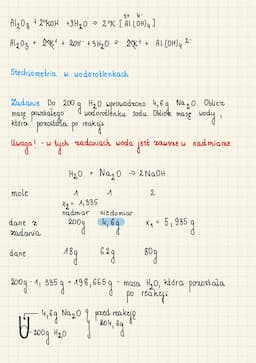 Al₂O₃ + 2KOH + 3H₂O → 2K [Al(OH)₄]
Al₂O₃ + 2K⁺ + 2OH⁻ + 3H₂O → 2K⁺ + Al(OH)₄ ²⁻
Stechiometria w wodorotlenkach
Zadanie Do 200 g H₂O wprowadzono 4,6 g Na₂O. Oblicz
masę powstałego wodorotlenku sodu. Oblicz masę wody,
która pozostała po reakcji
Uwaga! - w tych zadaniach woda jest zawsze w nadmiarze
H₂O + Na₂O → 2NaOH
mole 1 1 2
x₂ = 1,335
nadmiar niedomiar
dane z zadania 200g 4,6g x₁ = 5,935 g
dane 18g 62g 80g
200g - 1,335g = 198,665g - masa H₂O, która pozostała
po reakcji
4,6g Na₂O przed reakcją
200g H₂O 204,6g